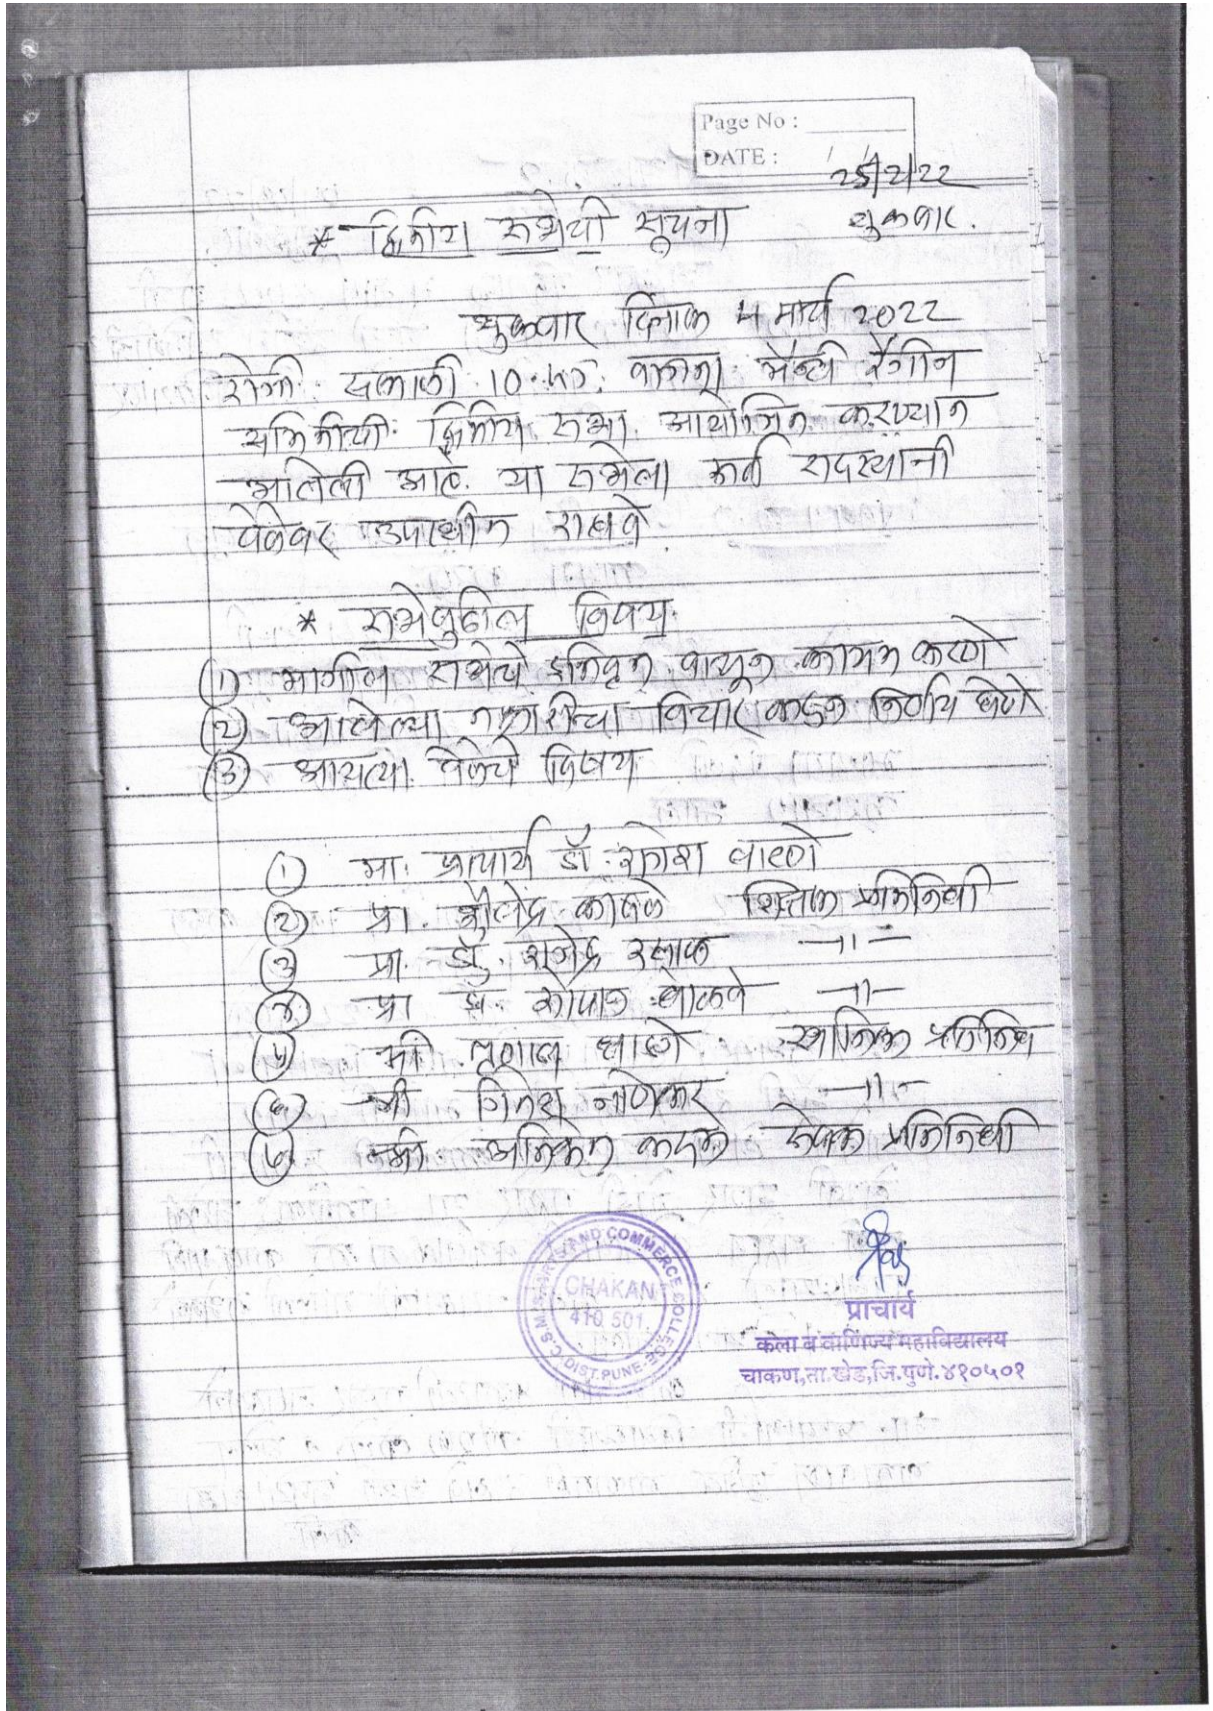 Page No :
DATE :
25/2/22
शुक्रवार.
* द्वितीय सभेची सूचना
शुक्रवार दिनांक 4 मार्च 2022
रोजी सकाळी 10.45 वाजता अँन्टी रॅगींग
समितीची द्वितीय सभा आयोजित करण्यात
आलेली आहे. या सभेला सर्व सदस्यांनी
वेळेवर उपस्थीत राहावे
* सभेपुढील विषय
(1) मागील सभेचे इतिवृत्त वाचून कायम करणे
(2) आलेल्या तक्रारींचा विचार करून निर्णय घेणे
(3) आयत्या वेळेचे विषय
(1) मा. प्राचार्य डॉ. राजेश
(2) प्रा. कांबळे शिक्षक प्रतिनिधी
(3) प्रा. डॉ. राजेंद्र —11—
(4) प्रा —11—
(5) श्री स्थानिक प्रतिनिधि
(6) श्री —11—
(7) श्री अनिकेत सेवक प्रतिनिधी
C.S.M.'S. ARTS AND COMMERCE COLLEGE
CHAKAN
410 501.
DIST.PUNE.
प्राचार्य
कला व वाणिज्य महाविद्यालय
चाकण,ता.खेड,जि.पुणे.४१०५०१